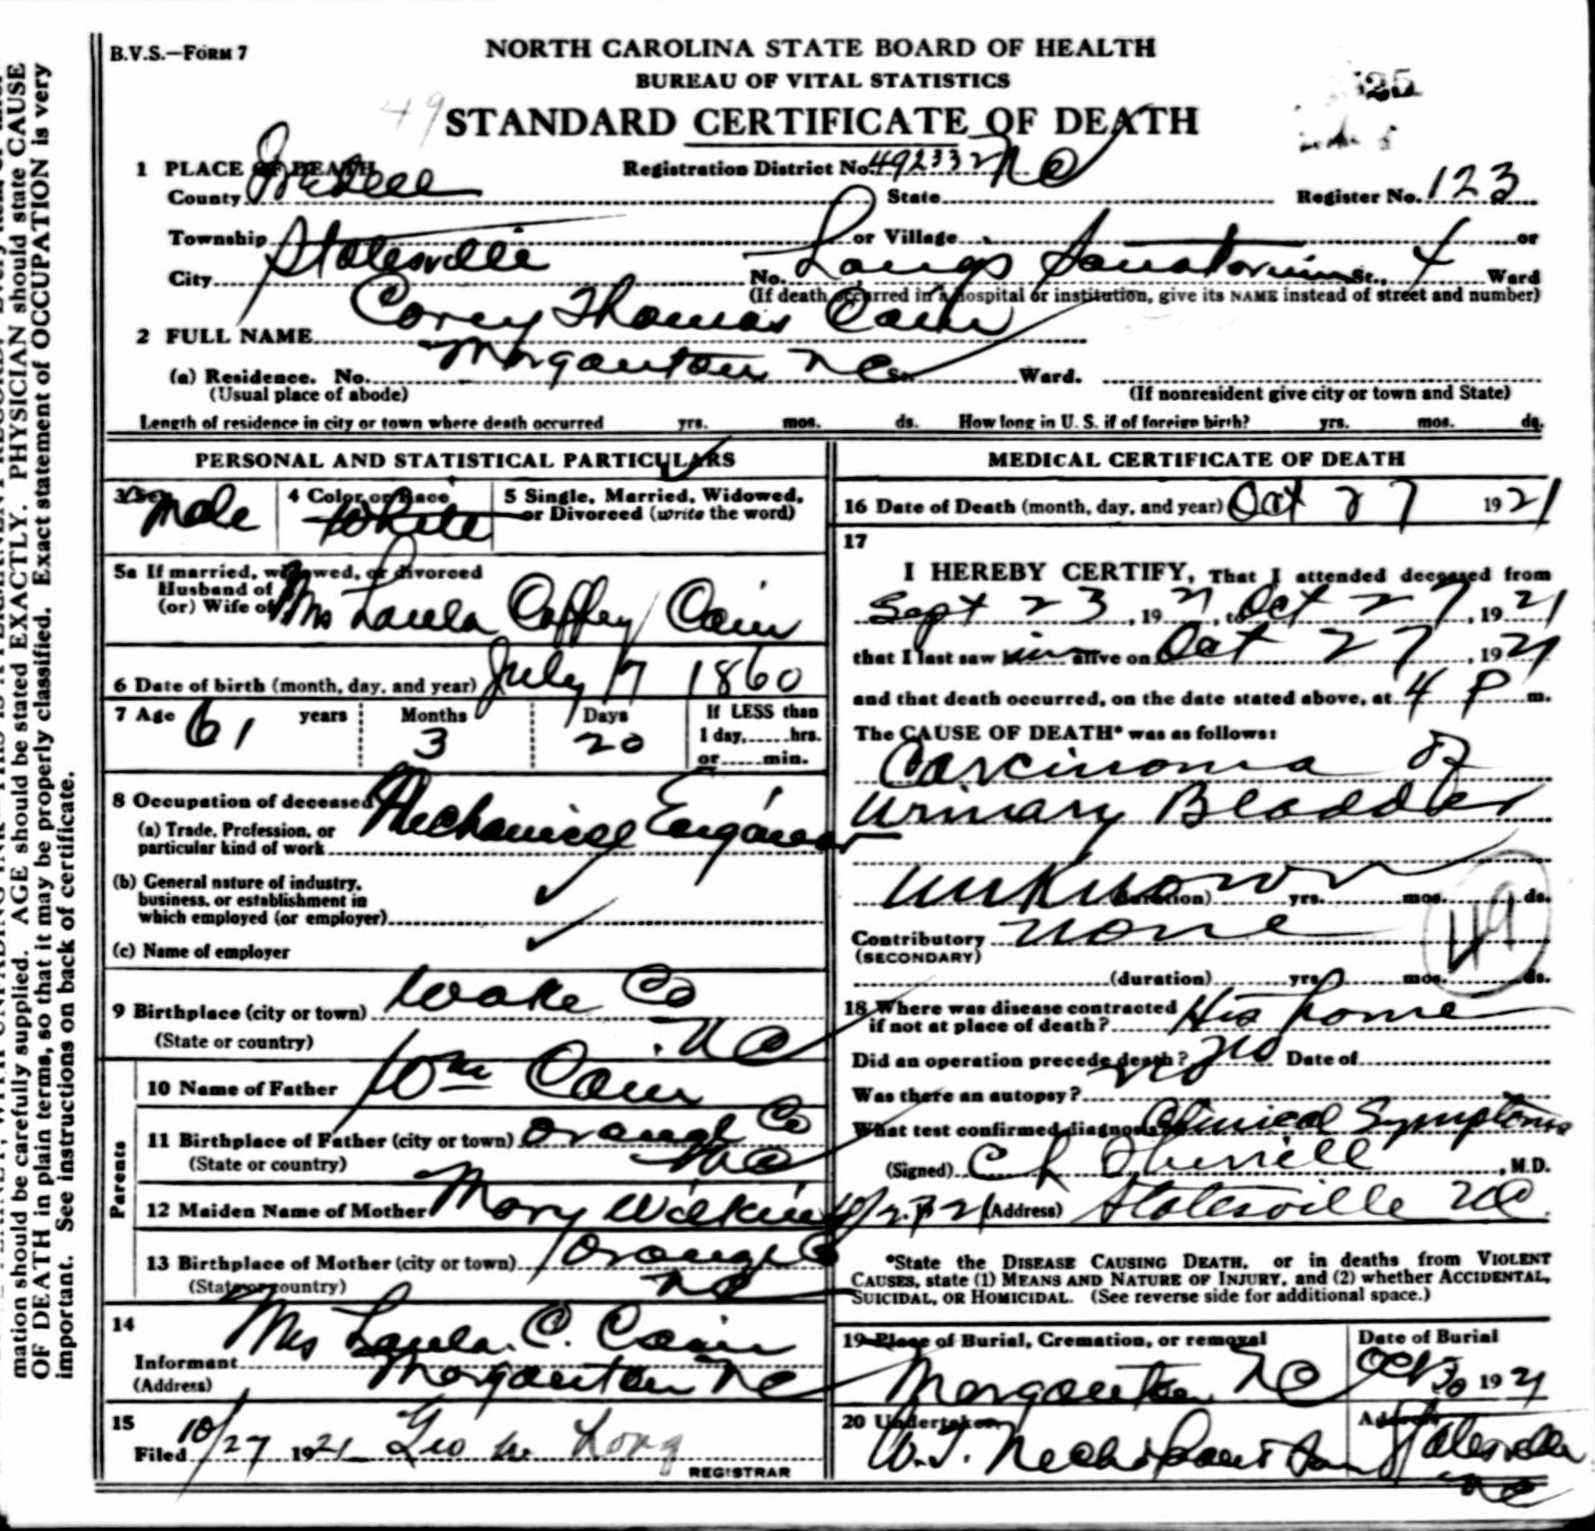 B.V.S.—FORM 7
NORTH CAROLINA STATE BOARD OF HEALTH
BUREAU OF VITAL STATISTICS
49 STANDARD CERTIFICATE OF DEATH
1 PLACE OF DEATH Registration District No. 492332
County Iredell State N C Register No. 123
Township or Village or
City Statesville No. Longs Sanatorium St., 4 Ward
(If death occurred in a hospital or institution, give its NAME instead of street and number)
2 FULL NAME Corey Thomas Cain
(a) Residence. No. Morganton N C St. Ward.
(Usual place of abode) (If nonresident give city or town and State)
Length of residence in city or town where death occurred yrs. mos. ds. How long in U. S. if of foreign birth? yrs. mos. ds.
PERSONAL AND STATISTICAL PARTICULARS
3 Sex Male 4 Color or Race White 5 Single, Married, Widowed,
or Divorced (write the word)
5a If married, widowed, or divorced
Husband of
(or) Wife of Mrs Laula Coffey Cain
6 Date of birth (month, day, and year) July 17 1860
7 Age 61 years Months 3 Days 20 If LESS than
1 day, hrs.
or min.
8 Occupation of deceased Mechanical Engineer
(a) Trade, Profession, or
particular kind of work
(b) General nature of industry,
business, or establishment in
which employed (or employer)
(c) Name of employer
9 Birthplace (city or town) Wake Co
(State or country) N C
Parents
10 Name of Father Wm Cain
11 Birthplace of Father (city or town) Orange Co
(State or country) N C
12 Maiden Name of Mother Mary Wilkins
13 Birthplace of Mother (city or town) Orange Co
(State or country) N C
14
Informant Mrs Laula C. Cain
(Address) Morganton N C
15
Filed 10/27 1921 Geo W Long
REGISTRAR
MEDICAL CERTIFICATE OF DEATH
16 Date of Death (month, day, and year) Oct 27 1921
17
I HEREBY CERTIFY, That I attended deceased from
Sept 23, 1921, to Oct 27, 1921
that I last saw him alive on Oct 27, 1921
and that death occurred, on the date stated above, at 4 P m.
The CAUSE OF DEATH* was as follows:
Carcinoma of
Urinary Bladder
Unknown (duration) yrs. mos. ds.
Contributory None 49
(SECONDARY)
(duration) yrs. mos. ds.
18 Where was disease contracted
if not at place of death? His home
Did an operation precede death? No Date of
Was there an autopsy? No
What test confirmed diagnosis? Clinical Symptoms
(Signed) M.D.
(Address) Statesville N C.
*State the DISEASE CAUSING DEATH, or in deaths from VIOLENT
CAUSES, state (1) MEANS AND NATURE OF INJURY, and (2) whether ACCIDENTAL,
SUICIDAL, OR HOMICIDAL. (See reverse side for additional space.)
19 Place of Burial, Cremation, or removal Date of Burial
Morganton N C Oct 30 1921
20 Undertaker Address
W. T. Statesville
N C
mation should be carefully supplied. AGE should be stated EXACTLY. PHYSICIAN should state CAUSE
OF DEATH in plain terms, so that it may be properly classified. Exact statement of OCCUPATION is very
important. See instructions on back of certificate.